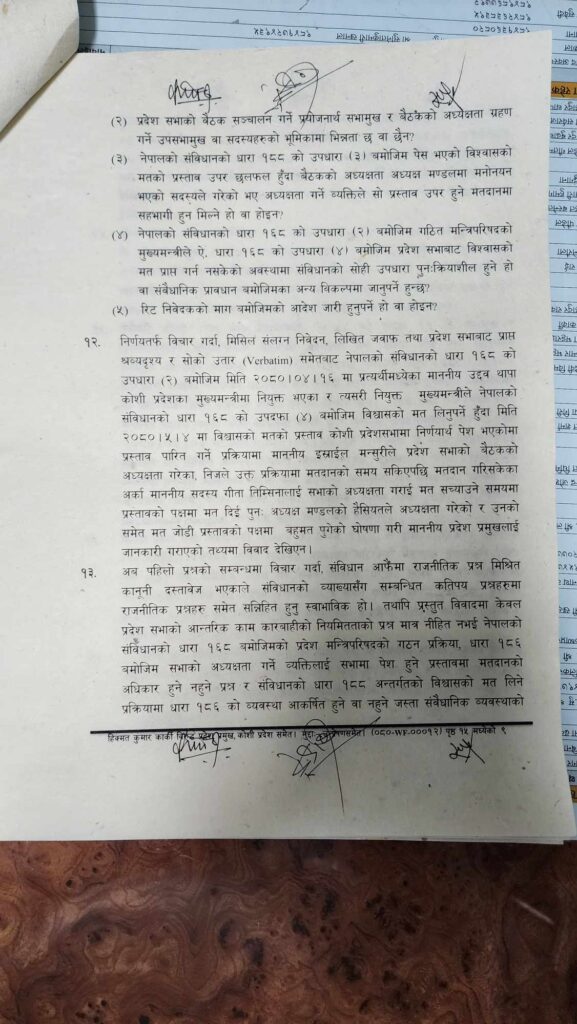 (२) प्रदेश सभाको बैठक सञ्चालन गर्ने प्रयोजनार्थ सभामुख र बैठकको अध्यक्षता ग्रहण
गर्ने उपसभामुख वा सदस्यहरुको भूमिकामा भिन्नता छ वा छैन?
(३) नेपालको संविधानको धारा १८८ को उपधारा (३) बमोजिम पेस भएको विश्वासको
मतको प्रस्ताव उपर छलफल हुँदा बैठकको अध्यक्षता अध्यक्ष मण्डलमा मनोनयन
भएको सदस्यले गरेको भए अध्यक्षता गर्ने व्यक्तिले सो प्रस्ताव उपर हुने मतदानमा
सहभागी हुन मिल्ने हो वा होइन?
(४) नेपालको संविधानको धारा १६८ को उपधारा (२) बमोजिम गठित मन्त्रिपरिषदको
मुख्यमन्त्रीले ऐ. धारा १६८ को उपधारा (४) बमोजिम प्रदेश सभाबाट विश्वासको
मत प्राप्त गर्न नसकेको अवस्थामा संविधानको सोही उपधारा पुनःक्रियाशील हुने हो
वा संवैधानिक प्रावधान बमोजिमका अन्य विकल्पमा जानुपर्ने हुन्छ?
(५) रिट निवेदकको माग बमोजिमको आदेश जारी हुनुपर्ने हो वा होइन?
१२. निर्णयतर्फ विचार गर्दा, मिसिल संलग्न निवेदन, लिखित जवाफ तथा प्रदेश सभाबाट प्राप्त
श्रव्यदृश्य र सोको उतार (Verbatim) समेतबाट नेपालको संविधानको धारा १६८ को
उपधारा (२) बमोजिम मिति २०८०।०४।१६ मा प्रत्यर्थीमध्येका माननीय उद्दव थापा
कोशी प्रदेशका मुख्यमन्त्रीमा नियुक्त भएका र त्यसरी नियुक्त मुख्यमन्त्रीले नेपालको
संविधानको धारा १६८ को उपदफा (४) बमोजिम विश्वासको मत लिनुपर्ने हुँदा मिति
२०८०।५।४ मा विश्वासको मतको प्रस्ताव कोशी प्रदेशसभामा निर्णयार्थ पेश भएकोमा
प्रस्ताव पारित गर्ने प्रक्रियामा माननीय इस्राईल मन्सुरीले प्रदेश सभाको बैठकको
अध्यक्षता गरेका, निजले उक्त प्रक्रियामा मतदानको समय सकिएपछि मतदान गरिसकेका
अर्का माननीय सदस्य गीता तिम्सिनालाई सभाको अध्यक्षता गराई मत सच्याउने समयमा
प्रस्तावको पक्षमा मत दिई पुनः अध्यक्ष मण्डलको हैसियतले अध्यक्षता गरेको र उनको
समेत मत जोडी प्रस्तावको पक्षमा बहुमत पुगेको घोषणा गरी माननीय प्रदेश प्रमुखलाई
जानकारी गराएको तथ्यमा विवाद देखिएन।
१३. अब पहिलो प्रश्नको सम्बन्धमा विचार गर्दा, संविधान आफैंमा राजनीतिक प्रश्न मिश्रित
कानूनी दस्तावेज भएकाले संविधानको व्याख्यासँग सम्बन्धित कतिपय प्रश्नहरुमा
राजनीतिक प्रश्नहरु समेत सन्निहित हुनु स्वाभाविक हो। तथापि प्रस्तुत विवादमा केवल
प्रदेश सभाको आन्तरिक काम कारबाहीको नियमितताको प्रश्न मात्र नीहित नभई नेपालको
संविधानको धारा १६८ बमोजिमको प्रदेश मन्त्रिपरिषदको गठन प्रक्रिया, धारा १८६
बमोजिम सभाको अध्यक्षता गर्ने व्यक्तिलाई सभामा पेश हुने प्रस्तावमा मतदानको
अधिकार हुने नहुने प्रश्न र संविधानको धारा १८८ अन्तर्गतको विश्वासको मत लिने
प्रक्रियामा धारा १८६ को व्यवस्था आकर्षित हुने वा नहुने जस्ता संवैधानिक व्यवस्थाको
हिक्मत कुमार कार्की विरुद्ध प्रदेश प्रमुख, कोशी प्रदेश समेत। मुद्दा: (०८०-WF-०००१२) पृष्ठ १५ मध्येको ९